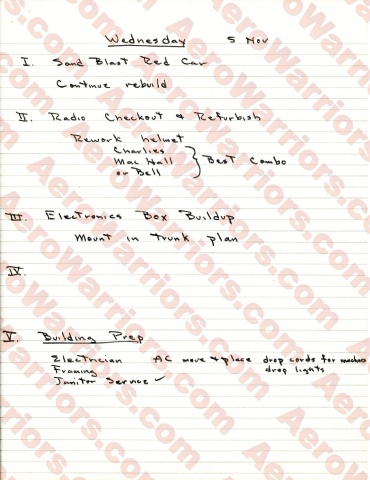 Wednesday 5 Nov
I. Sand Blast Red Car
Continue rebuild
II. Radio Checkout & Refurbish
Rework helmet
Charlies
Mac Hall } Best Combo
or Bell
III. Electronics Box Buildup
Mount in trunk plan
IV.
V. Building Prep
Electrician AC move & place drop cords for
Framing drop lights
Janitor Service ✓
AeroWarriors.com